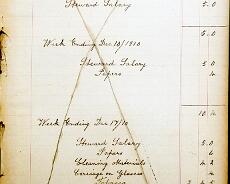 Steward Salary 5.0
5.0
Week Ending Dec 10/1910
Steward Salary 5.0
Papers 4
10.4
Week Ending Dec 17/10
Steward Salary 5.0
Papers 4
Cleaning Materials 4.2
Carriage on Glasses 4
Tobacco